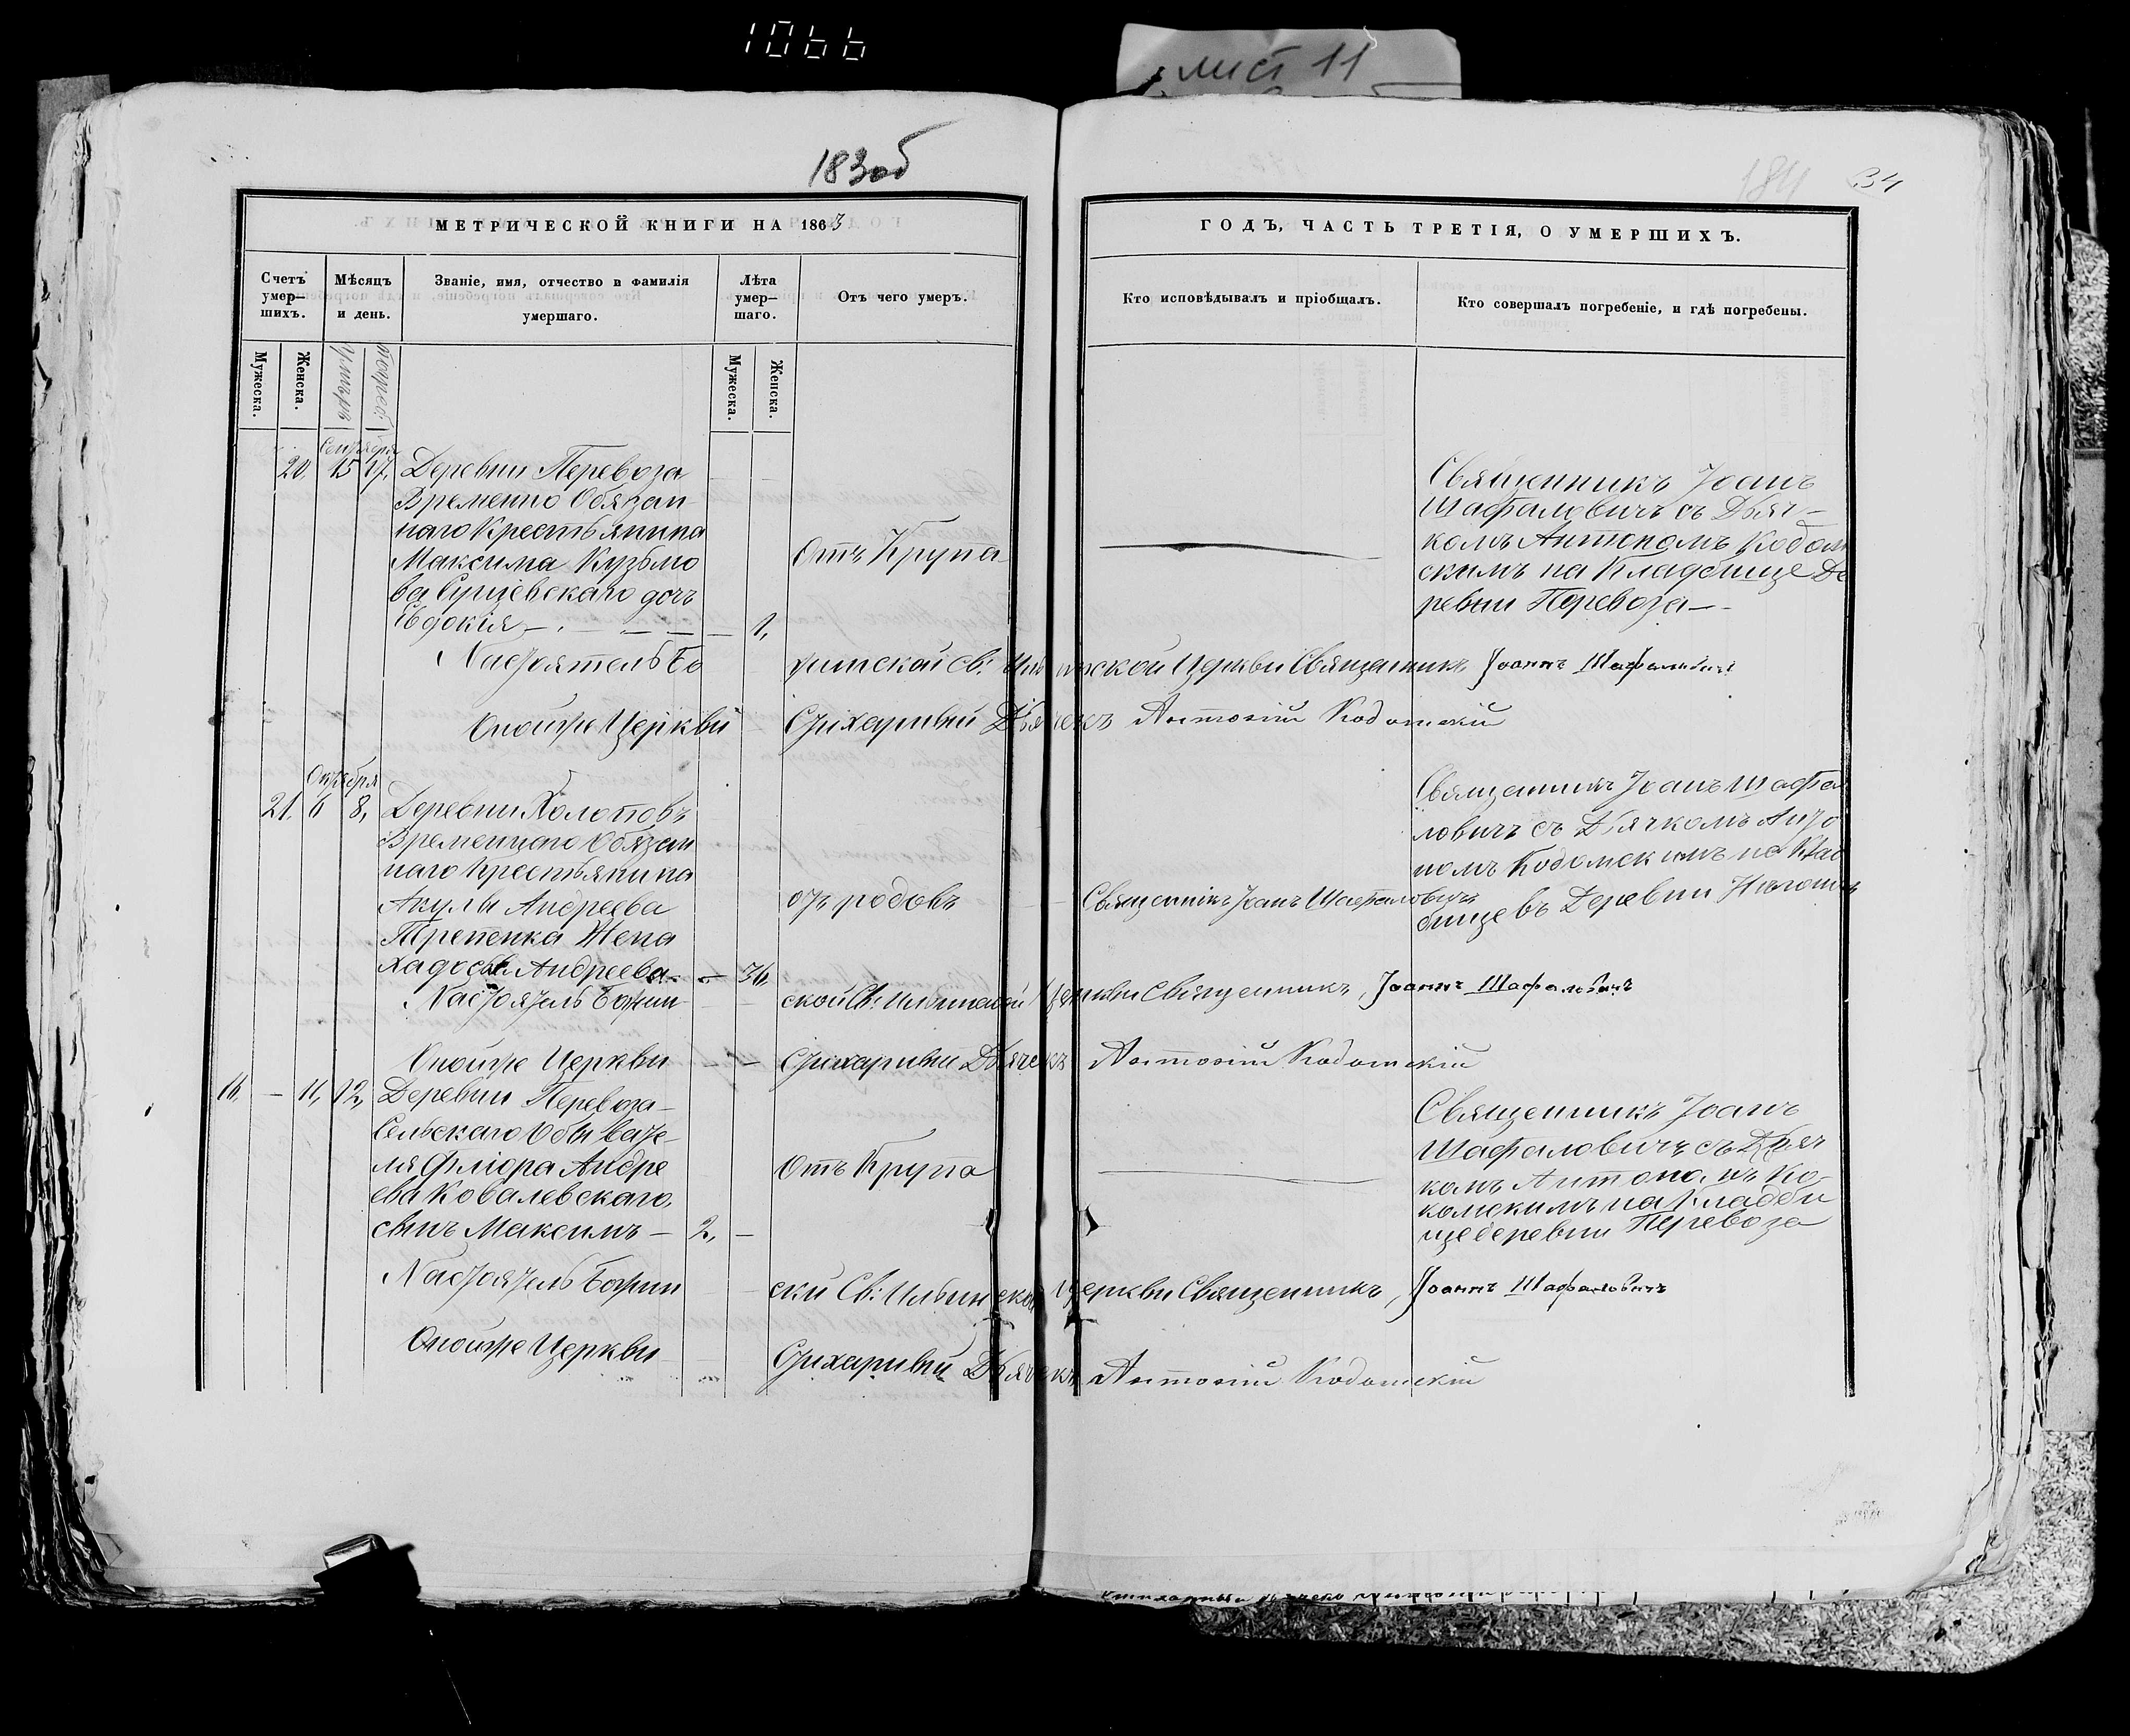 1066
лист 11
183об
184 34
МЕТРИЧЕСКОЙ КНИГИ НА 1863
ГОДЪ, ЧАСТЬ ТРЕТІЯ, О УМЕРШИХЪ.
Счетъ умер-шихъ.
Мѣсяцъ и день.
Званіе, имя, отчество и фамилія умершаго.
Лѣта умер-шаго.
Отъ чего умеръ.
Кто исповѣдывалъ и пріобщалъ.
Кто совершалъ погребеніе, и гдѣ погребены.
Мужеска.
Женска.
Умеръ
Погреб
Мужеска.
Женска.
Сентября
20. 15 17. Деревни Перевоза
Временно Обязан
наго Крестьянина
Максима Кузьмо
ва Сущевскаго дочь
Евдокія — 1,
Отъ Крупа
Священникъ Іоанъ
Шафаловичъ съ Дьяч-
комъ Антономъ
скимъ на Кладбище Де
ревни Перевоза—
Настоятель Бо жинской Св: Ильинской Церкви Священникъ, Іоаннъ Шафаловичъ
Онойже Церкви Стихарный Дьячекъ Антоній
Октября
21. 6 8, Деревни Холоповъ
Временнаго Обязан
наго Крестьянина
Акулы Андреева
Жена
Андреева — 36,
отъ родовъ
Священникъ Іоанъ Шафаловичъ
Священникъ Іоанъ Шафа
ловичъ съ Дьячкомъ Анто
номъ на Клад
бище въ Деревни
Настоятель Божин ской Св: Ильинской Церкви Священникъ, Іоаннъ Шафаловичъ
Онойже Церкви — — Стихарный Дьячекъ Антоній
16. — 11, 12, Деревни Перевоза—
Сельскаго Обывате-
ля Андре
ева Ковалевскаго,
сынъ Максимъ — 2, —
Отъ Крупа
Священникъ Іоанъ
Шафаловичъ съ Дьяч
комъ Антономъ Ко
комскимъ на Кладби
ще деревни Перевоза
Настоятель Божин ски Св: Ильинской Церкви Священникъ, Іоаннъ Шафаловичъ
Онойже Церкви Стихарный Дьячекъ Антоній